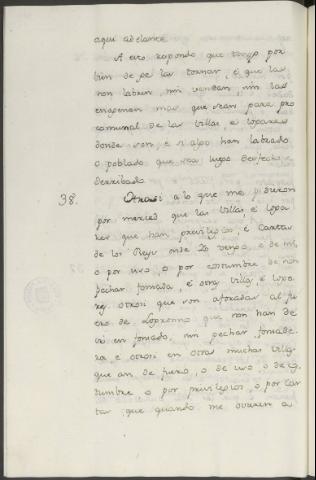 aqui adelante
A esto respondo que tengo por
bien de se las tornar, é que las
non labren, nin vendan, nin las
enagenen mas que sean para pro
comunal de las villas é logares
donde son, é si algo han labrado
o poblado que sea luego desfecho é
derribado.
38. Otrossi a lo que me pidieron
por merced que las villas, é loga
res que han previlegios, é cartas
de los Reyes onde Yo vengo, é de mi,
o por uso, o por costumbre de non
pechar fonsada, é otras villas, é loga
res otrosi que son aforadas al fu
ero de Logronno que non han de
ir en fonsado, nin pechar fonsade
ra é otrosi en otras muchas villas
que an de fuero, o de uso, o de cos
tumbre o por privilegios, o por car
tas que quando me ovieren a